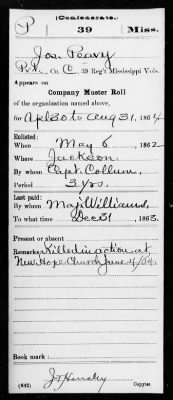 P
(Confederate.)
39
Miss.
Jos. Peavy
Pvt., Co. C, 39 Reg't Mississippi Vols.
Appears on
Company Muster Roll
of the organization named above,
for Apl 30 to Aug 31, 1864
Enlisted:
When May 6, 1862
Where Jackson
By whom Capt. Collum,
Period 3 yrs.
Last paid:
By whom Maj. Williams,
To what time Dec 31, 1863.
Present or absent
Remarks: Killed in action at
New Hope Church June 4/64.
Book mark:
(642)
Copyist.